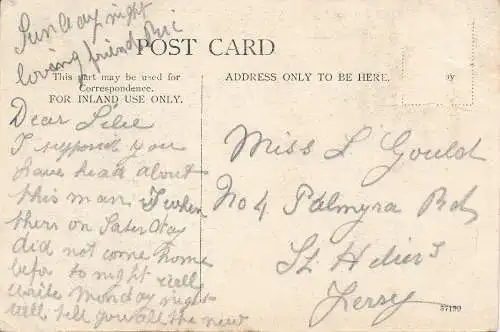 Sunday night
loving friend
POST CARD
This part may be used for
Correspondence.
FOR INLAND USE ONLY.
ADDRESS ONLY TO BE HERE.
by
Dear Lilie
I suppose you
have heard about
this man I when
thers on Saterday
did not come home
befor to night will
write Monday night
will tell you all the new
Miss L Gould
No 4 Palmyra Rd
St Heliers
Jersy
57190